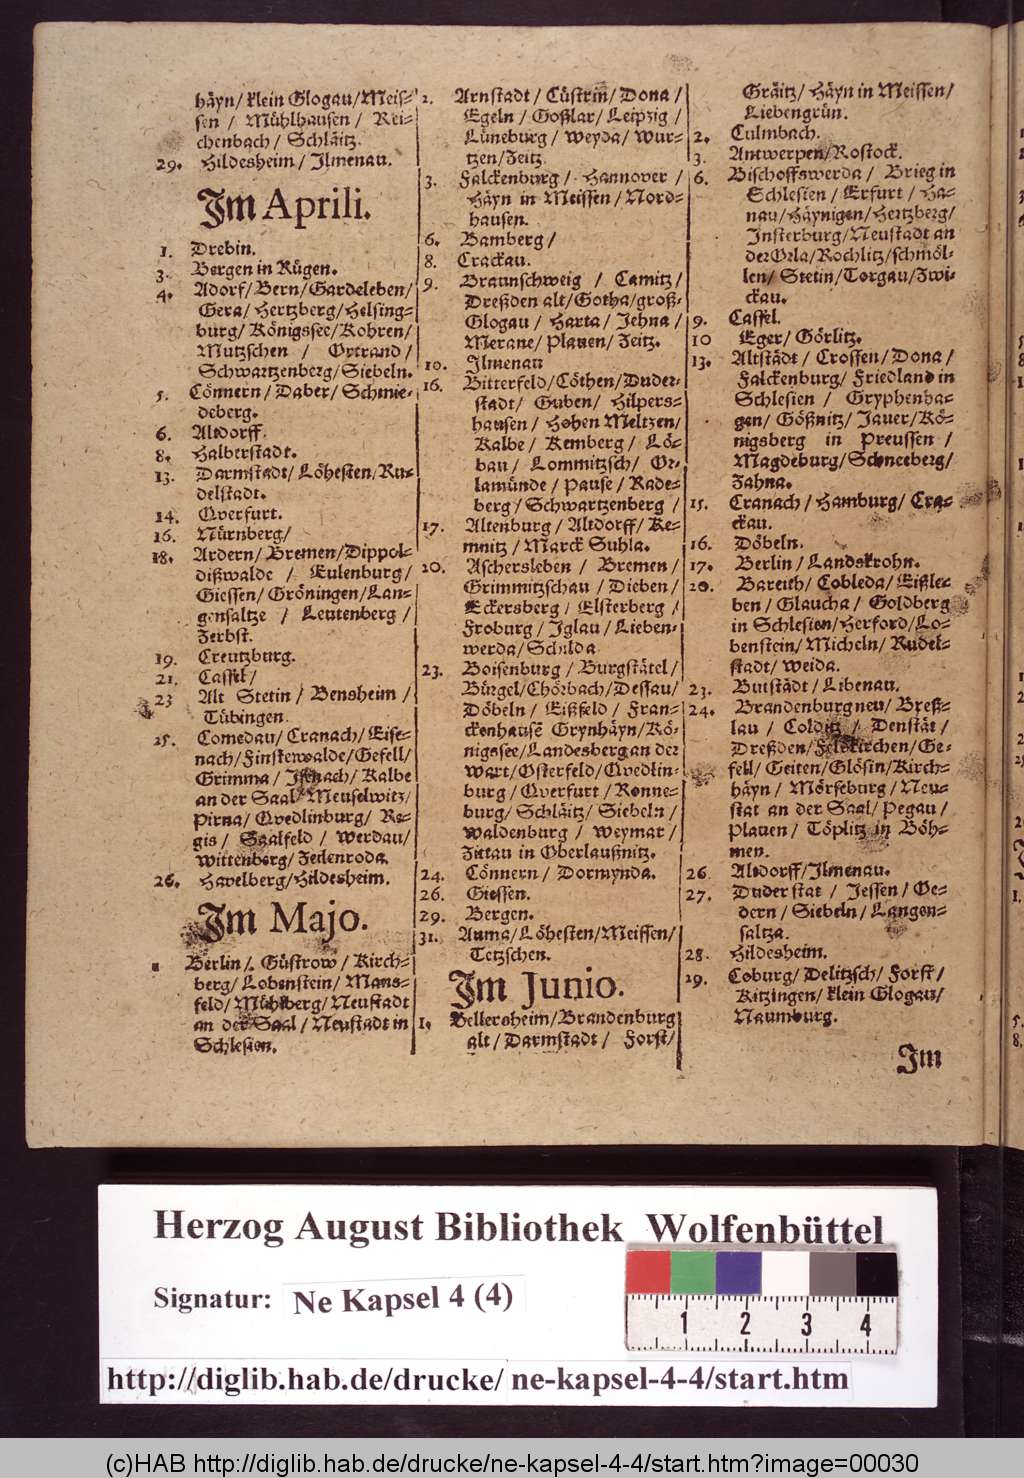 häyn/klein Glogau/Meis-
sen / Mühlhausen / Rei-
chenbach / Schläitz.
29. Hildesheim / Ilmenau.
Im Aprili.
1. Drebin.
3. Bergen in Rügen.
4. Adorf/Bern/Gardeleben/
Gera/Hertzberg/Helsing-
burg/Königssee/Kohren/
Mutzschen / Ortrand /
Schwartzenberg/Siebeln.
5. Cönnern/Daber/Schmie-
deberg.
6. Altdorff.
8. Halberstadt.
13. Darmstadt/Löhesten/Ru-
delstadt.
14. Qverfurt.
16. Nürnberg/
18. Ardern/Bremen/Dippol-
dißwalde / Eulenburg/
Giessen/Gröningen/Lan-
gensaltze / Leutenberg /
Zerbst.
19. Creutzburg.
21. Cassel/
23 Alt Stetin / Bensheim /
Tübingen.
25. Comedau/Cranach/Eise-
nach/Finsterwalde/Gefell/
Grimma / Isenach/ Kalbe
an der Saal/Meuselwitz/
Pirna/Qvedlinburg/ Re-
gis / Saalfeld / Werdau/
Wittenberg/Zeilenroda.
26. Havelberg/Hildesheim.
Im Majo.
Berlin/ Güstrow / Kirch-
berg/ Lobenstein/ Mans-
feld/Mühlberg/Neustadt
an der Saal / Neustadt in
Schlesien.
2. Arnstadt / Cüstrin/ Dona /
Egeln / Goßlar/ Leipzig /
Lüneburg / Weyda/ Wur-
tzen/Zeitz.
3. Falckenburg / Hannover /
Häyn in Meissen / Nord-
hausen.
6. Bamberg /
8. Crackau.
9. Braunschweig / Camitz/
Dreßden alt/Gotha/groß-
Glogau / Harta / Jehna /
Merane/ Plauen/ Zeitz.
10. Ilmenau
16. Bitterfeld/Cöthen/Duder-
stadt/ Guben/ Hilpers-
hausen / Hohen Meltzen/
Kalbe / Kemberg / Lö-
bau / Lommitzsch/ Or-
lamünde / Pause / Rade-
berg / Schwartzenberg /
17. Altenburg / Altdorff/ Ke-
mnitz / Marck Suhla.
20. Aschersleben / Bremen /
Grimmitzschau / Dieben/
Eckersberg / Elsterberg /
Froburg / Iglau / Lieben-
werda/Schilda
23. Boisenburg / Burgstätel/
Bürgel/Chörbach/Dessau/
Döbeln / Eißfeld / Fran-
ckenhausē Grynhäyn/Kö-
nigssee/Landesberg an der
Wart/Osterfeld/Qvedlin-
burg / Qverfurt / Ronne-
burg/ Schläitz/ Siebeln /
Waldenburg / Weymar /
Zittau in Oberlaußnitz.
24. Cönnern / Dormynda.
26. Giessen.
29. Bergen.
31. Auma/Löhesten/Meissen/
Tetzschen.
Im Junio.
1. Bellersheim/Brandenburg
alt / Darmstadt / Forst/
Gräitz/ Häyn in Meissen/
Liebengrün.
2. Culmbach.
3. Antwerpen/Rostock.
6. Bischoffswerda / Brieg in
Schlesien / Erfurt / Ha-
nau/Häynigen/Hertzberg/
Insterburg/Neustadt an
der Orla/Rochlitz/schmöl-
len/ Stetin/Torgau/Zwi-
ckau.
9. Cassel.
10 Eger/ Görlitz.
13. Altstädt / Crossen/Dona /
Falckenburg/ Friedland in
Schlesien / Gryphenha-
gen/ Gößnitz/ Jauer/Kö-
nigsberg in Preussen /
Magdeburg/Schneeberg/
Zahna.
15. Cranach/ Hamburg/ Cra-
ckau.
16. Döbeln.
17. Berlin / Landskrohn.
20. Bareith/ Cobleda/ Eißle-
ben / Glaucha / Goldberg
in Schlesien/Herford/Lo-
benstein/ Micheln/ Rudel-
stadt / Weida.
23. Butstädt / Libenau.
24. Brandenburg neu/ Breß-
lau / Colditz / Denstät /
Dreßden/Feldkirchen/Ge-
fell/ Geiten/Glösin/Kirch-
häyn / Mörseburg / Neu-
stat an der Saal/ Pegau /
Plauen / Töplitz in Böh-
men.
26. Altdorff/Ilmenau.
27. Duderstat / Jessen / Oe-
dern / Siebeln / Langen-
saltza.
28. Hildesheim.
29. Coburg/ Delitzsch/ Forst /
Kitzingen/ klein Glogau/
Naumburg.
Im
Herzog August Bibliothek Wolfenbüttel
Signatur: Ne Kapsel 4 (4)
1 2 3 4
http://diglib.hab.de/drucke/ ne-kapsel-4-4/start.htm
(c)HAB http://diglib.hab.de/drucke/ne-kapsel-4-4/start.htm?image=00030